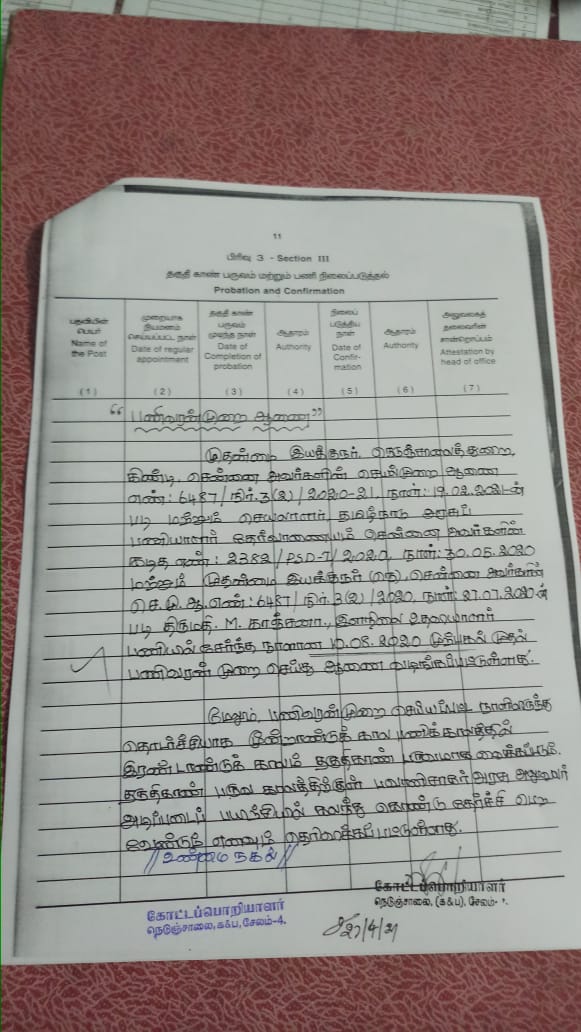 11
பிரிவு 3 - Section III
தகுதி காண் பருவம் மற்றும் பணி நிலைப்படுத்தல்
Probation and Confirmation
பதவியின் பெயர் Name of the Post
முறையாக நியமனம் செய்யப்பட்ட நாள் Date of regular appointment
தகுதி காண் பருவம் முடிந்த நாள் Date of Completion of probation
ஆதாரம் Authority
நிலைப் படுத்திய நாள் Date of Confirmation
ஆதாரம் Authority
அலுவலகத் தலைவரின் சான்றொப்பம் Attestation by head of office
(1) (2) (3) (4) (5) (6) (7)
"பணிவரன்முறை ஆணை"
முதன்மை இயக்குநர், நெடுஞ்சாலைத்துறை,
கிண்டி, சென்னை அவர்களின் செயல்முறை ஆணை
எண்: 6487/நிர்.3(2)/2020-21, நாள்: 19.02.2021-ன்
படி மற்றும் செயலாளர், தமிழ்நாடு அரசுப்
பணியாளர் தேர்வாணையம் சென்னை அவர்களின்
கடித எண்: 2382/PSD-7/2020, நாள்: 30.05.2020
மற்றும் முதன்மை இயக்குநர் (நெ), சென்னை அவர்களின்
செ.மு.ஆ.எண்: 6487/நிர்.3(2)/2020, நாள்: 27.07.2020-ன்
படி திருமதி. M. காஞ்சனா, இளநிலை உதவியாளர்
பணியில் சேர்ந்த நாளான 10.08.2020 முற்பகல் முதல்
பணிவரன் முறை செய்து ஆணை வழங்கப்பட்டுள்ளது.
மேலும், பணிவரன்முறை செய்யப்பட்ட நாளிலிருந்து
தொடர்ச்சியாக மூன்றாண்டுக் கால பணிக் காலத்தில்
இரண்டாண்டுக் காலம் தகுதிகாண் பருவமாக வைக்கப்படும்.
தகுதிகாண் பருவ காலத்திற்குள் பவானிசாகர் அரசு அலுவலர்
அடிப்படைப் பயிற்சியில் கலந்து கொண்டு தேர்ச்சி பெற
வேண்டும் எனவும் தெரிவிக்கப்பட்டுள்ளது.
//உண்மை நகல்//
கோட்டப்பொறியாளர்
நெடுஞ்சாலை, (க&ப), சேலம்-
கோட்டப்பொறியாளர்
நெடுஞ்சாலை, க&ப, சேலம்-4.
27/4/21